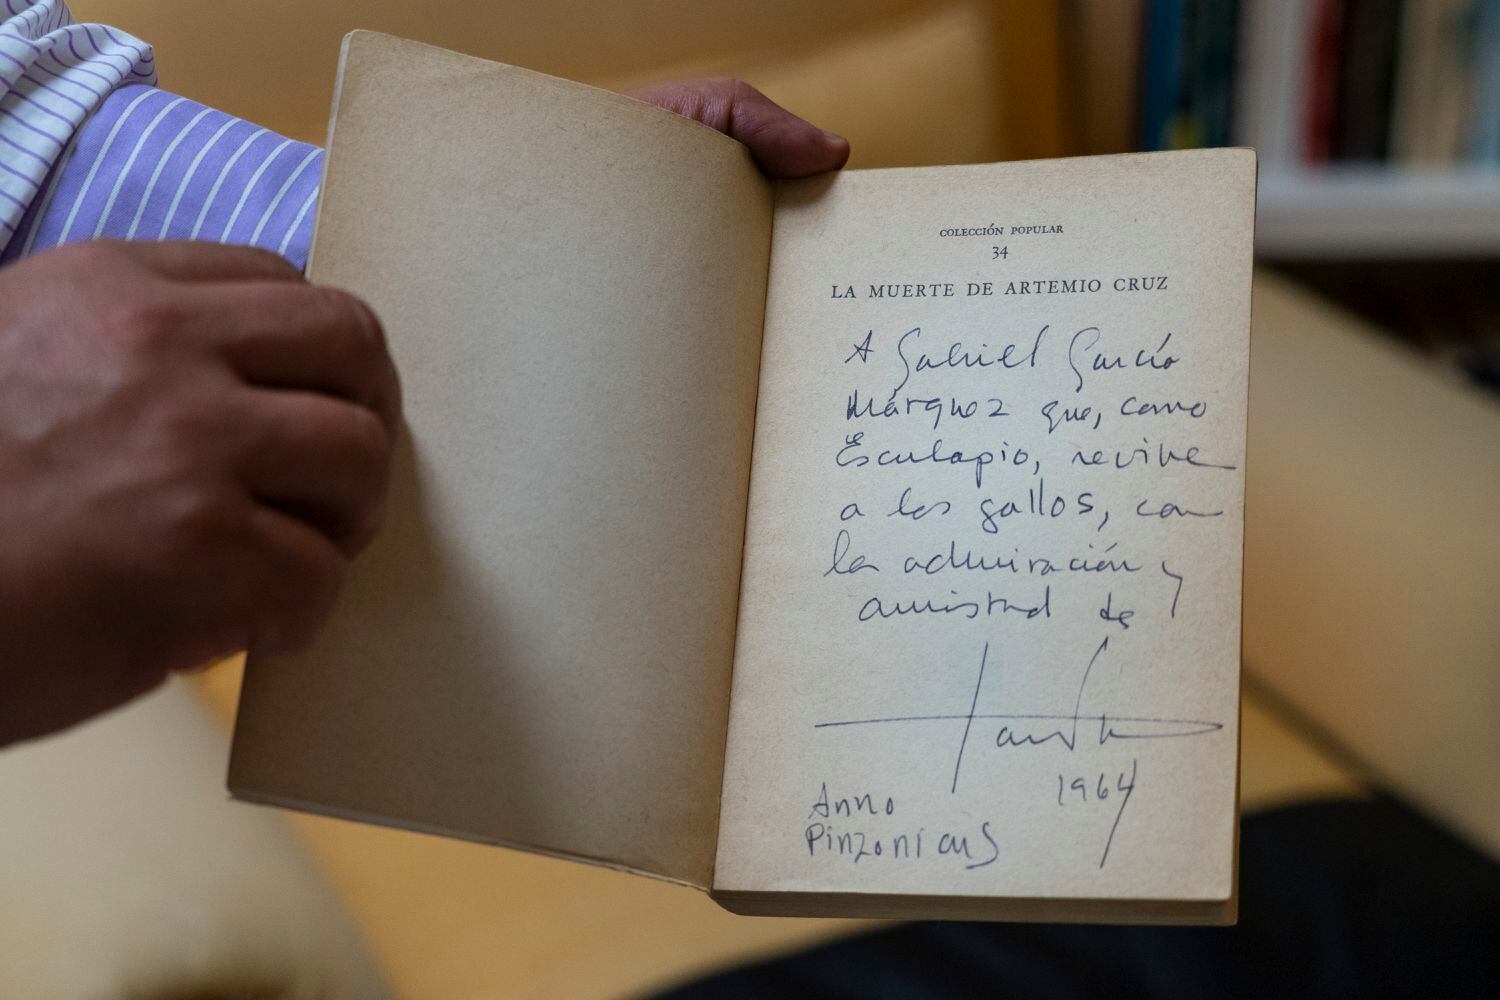 COLECCIÓN POPULAR
34
LA MUERTE DE ARTEMIO CRUZ
A Gabriel García
Márquez que, como
Esculapio, revive
a los gallos, con
la admiración y
amistad de
1964
Anno